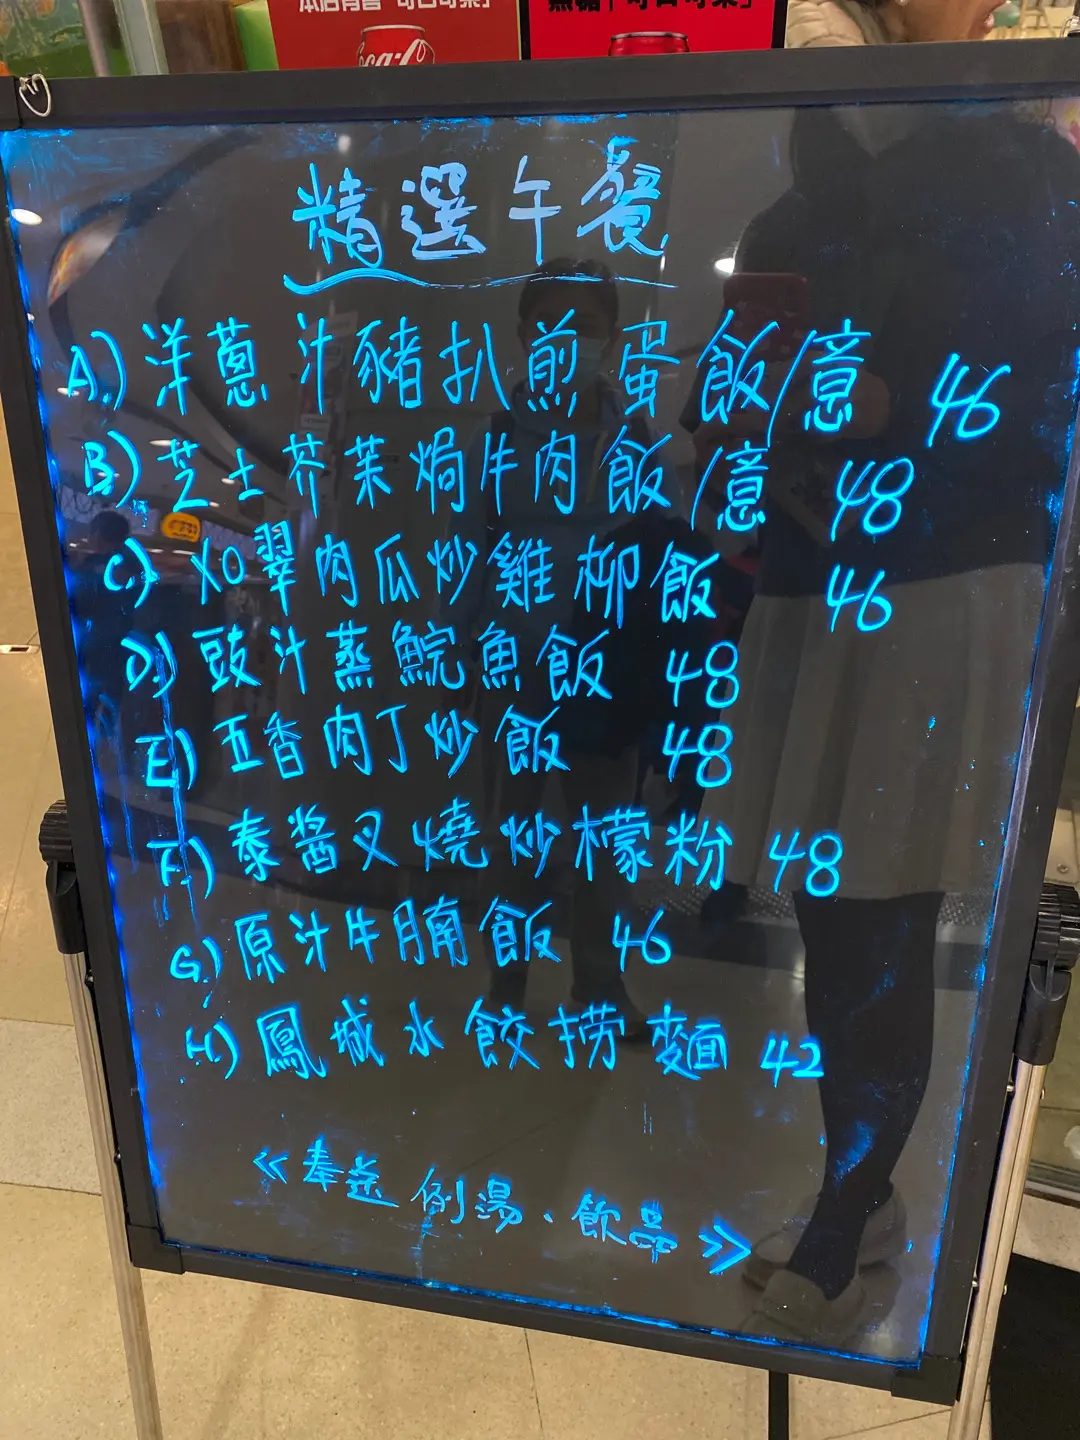 本店有售「可口可樂」
無糖「可口可樂」
Coca-C
精選午餐
A.) 洋蔥汁豬扒煎蛋飯/意 46
B.) 芝士芥茉焗牛肉飯/意 48
C.) XO翠肉瓜炒雞柳飯 46
D.) 豉汁蒸鯇魚飯 48
E.) 五香肉丁炒飯 48
F.) 泰醬叉燒炒檬粉 48
G.) 原汁牛腩飯 46
H.) 鳳城水餃撈麵 42
《奉送 例湯、飲品》